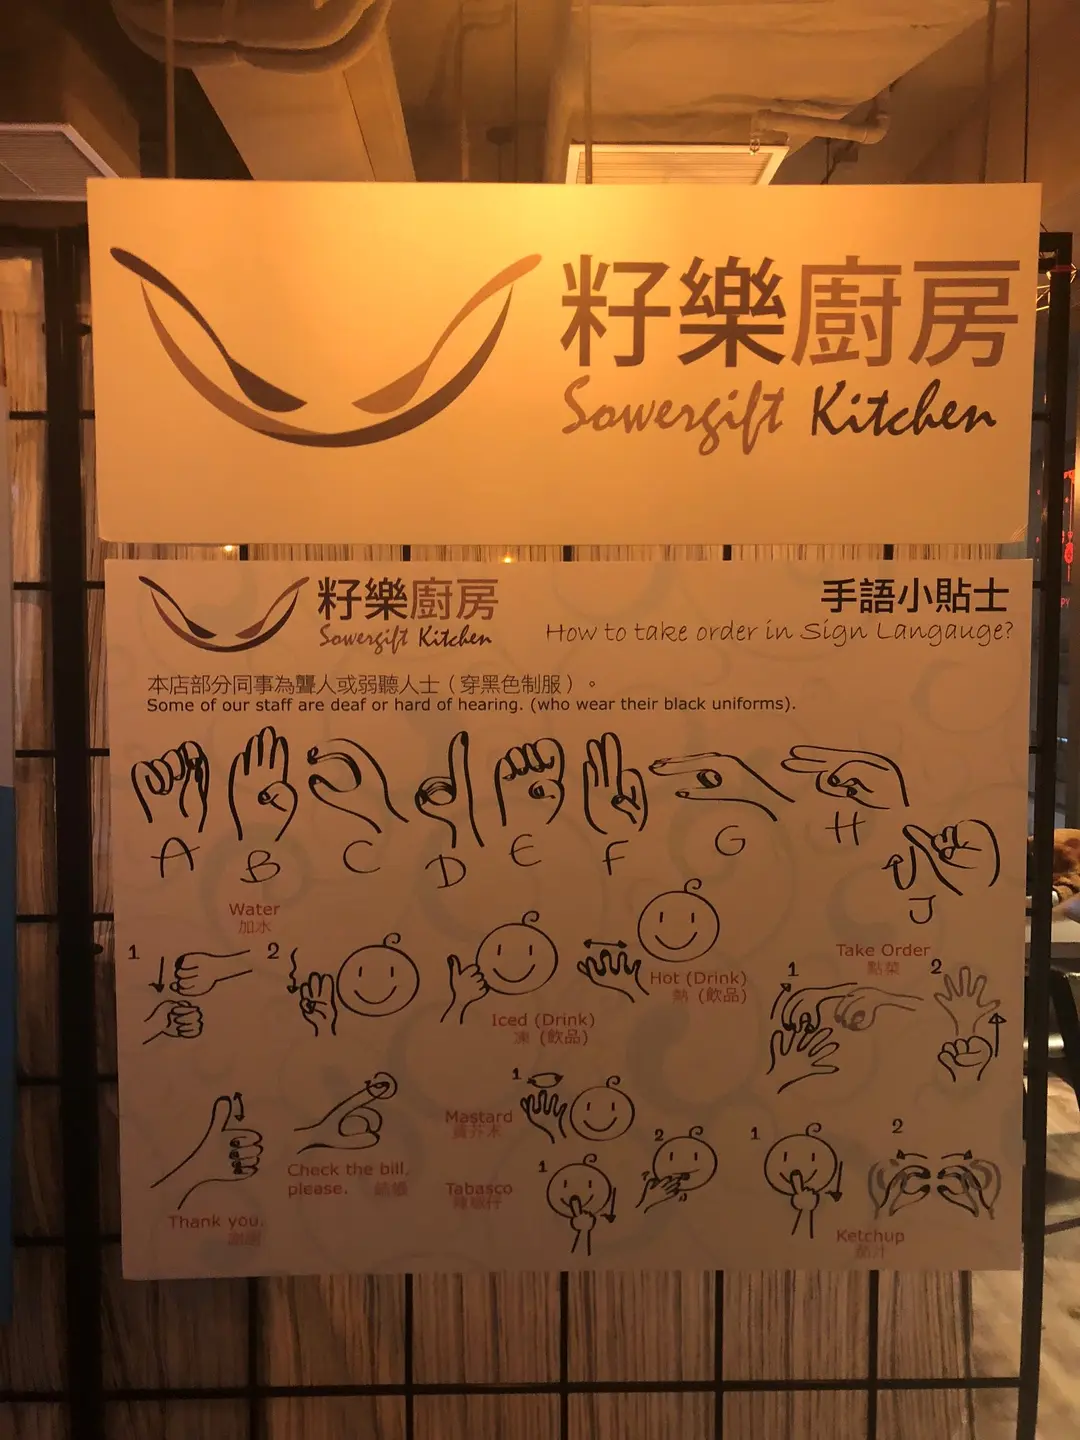 籽樂廚房
Sowergift Kitchen
籽樂廚房
Sowergift Kitchen
手語小貼士
How to take order in Sign Langauge?
本店部分同事為聾人或弱聽人士（穿黑色制服）。
Some of our staff are deaf or hard of hearing. (who wear their black uniforms).
A B C D E F G H J
Water
加水
1 2
Iced (Drink)
凍 (飲品)
Hot (Drink)
熱 (飲品)
Take Order
點菜
1 2
Thank you.
Check the bill,
please. 結帳
Mastard
1
Tabasco
1 2
Ketchup
茄汁
1 2